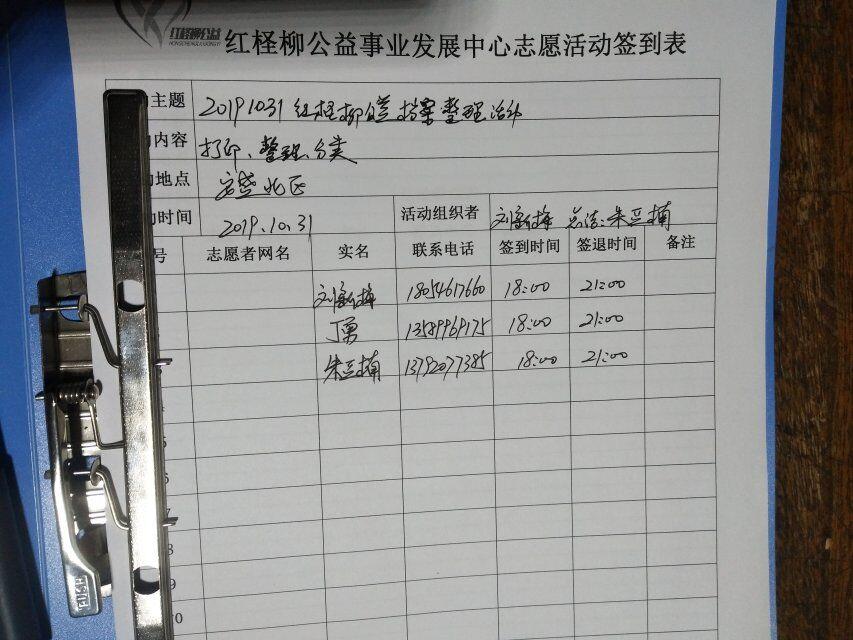 红柽柳公益
红柽柳公益事业发展中心志愿活动签到表
主题 20191031红柽柳公益档案整理活动
内容 打印、整理、分类
地点
时间 2019.10.31 活动组织者
号 志愿者网名 实名 联系电话 签到时间 签退时间 备注
18054617660 18:00 21:00
丁勇 13589969175 18:00 21:00
13792077385 18:00 21:00
7
8
9
0
PUSH